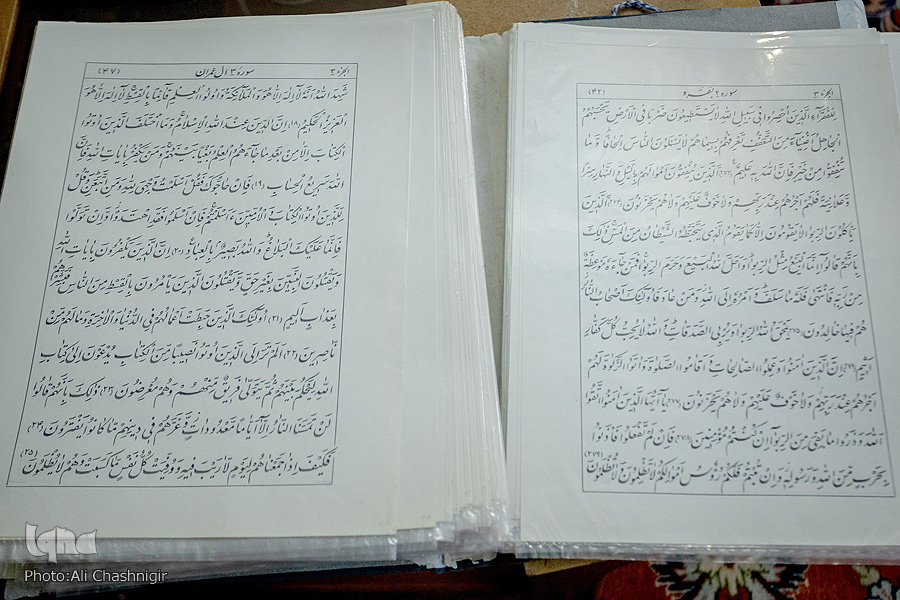 الجزء ۳ سوره ۲ بقره (۴۲)
لِلْفُقَرَاءِ الَّذِينَ اُحْصِرُوا فِي سَبِيلِ اللهِ لَا يَسْتَطِيعُونَ ضَرْبًا فِي الْاَرْضِ يَحْسَبُهُمُ
الْجَاهِلُ اَغْنِيَاءَ مِنَ التَّعَفُّفِ تَعْرِفُهُمْ بِسِيمَاهُمْ لَا يَسْئَلُونَ النَّاسَ اِلْحَافًا وَمَا
تُنْفِقُوا مِنْ خَيْرٍ فَاِنَّ اللهَ بِهِ عَلِيمٌ (۲۷۳) اَلَّذِينَ يُنْفِقُونَ اَمْوَالَهُمْ بِاللَّيْلِ وَالنَّهَارِ سِرًّا
وَعَلَانِيَةً فَلَهُمْ اَجْرُهُمْ عِنْدَ رَبِّهِمْ وَلَا خَوْفٌ عَلَيْهِمْ وَلَا هُمْ يَحْزَنُونَ (۲۷۴) اَلَّذِينَ
يَاْكُلُونَ الرِّبوا لَا يَقُومُونَ اِلَّا كَمَا يَقُومُ الَّذِي يَتَخَبَّطُهُ الشَّيْطَانُ مِنَ الْمَسِّ ذٰلِكَ
بِاَنَّهُمْ قَالُوا اِنَّمَا الْبَيْعُ مِثْلُ الرِّبوا وَاَحَلَّ اللهُ الْبَيْعَ وَحَرَّمَ الرِّبوا فَمَنْ جَاءَهُ مَوْعِظَةٌ
مِنْ رَبِّهِ فَانْتَهٰى فَلَهُ مَا سَلَفَ وَاَمْرُهُ اِلَى اللهِ وَمَنْ عَادَ فَاُولٰئِكَ اَصْحَابُ النَّارِ
هُمْ فِيهَا خَالِدُونَ (۲۷۵) يَمْحَقُ اللهُ الرِّبوا وَيُرْبِي الصَّدَقَاتِ وَاللهُ لَا يُحِبُّ كُلَّ كَفَّارٍ
اَثِيمٍ (۲۷۶) اِنَّ الَّذِينَ اٰمَنُوا وَعَمِلُوا الصَّالِحَاتِ وَاَقَامُوا الصَّلٰوةَ وَاٰتَوُا الزَّكٰوةَ لَهُمْ
اَجْرُهُمْ عِنْدَ رَبِّهِمْ وَلَا خَوْفٌ عَلَيْهِمْ وَلَا هُمْ يَحْزَنُونَ (۲۷۷) يَا اَيُّهَا الَّذِينَ اٰمَنُوا اتَّقُوا
اللهَ وَذَرُوا مَا بَقِيَ مِنَ الرِّبوا اِنْ كُنْتُمْ مُؤْمِنِينَ (۲۷۸) فَاِنْ لَمْ تَفْعَلُوا فَاْذَنُوا
بِحَرْبٍ مِنَ اللهِ وَرَسُولِهِ وَاِنْ تُبْتُمْ فَلَكُمْ رُؤُسُ اَمْوَالِكُمْ لَا تَظْلِمُونَ وَلَا تُظْلَمُونَ (۲۷۹)
الجزء ۳ سوره ۳ ال عمران (۴۷)
شَهِدَ اللهُ اَنَّهُ لَا اِلٰهَ اِلَّا هُوَ وَالْمَلٰئِكَةُ وَاُولُوا الْعِلْمِ قَائِمًا بِالْقِسْطِ لَا اِلٰهَ اِلَّا هُوَ
الْعَزِيزُ الْحَكِيمُ (۱۸) اِنَّ الدِّينَ عِنْدَ اللهِ الْاِسْلَامُ وَمَا اخْتَلَفَ الَّذِينَ اُوتُوا
الْكِتَابَ اِلَّا مِنْ بَعْدِ مَا جَاءَهُمُ الْعِلْمُ بَغْيًا بَيْنَهُمْ وَمَنْ يَكْفُرْ بِاٰيَاتِ اللهِ فَاِنَّ
اللهَ سَرِيعُ الْحِسَابِ (۱۹) فَاِنْ حَاجُّوكَ فَقُلْ اَسْلَمْتُ وَجْهِيَ لِلهِ وَمَنِ اتَّبَعَنِ وَقُلْ
لِلَّذِينَ اُوتُوا الْكِتَابَ وَالْاُمِّيِّينَ ءَاَسْلَمْتُمْ فَاِنْ اَسْلَمُوا فَقَدِ اهْتَدَوْا وَاِنْ تَوَلَّوْا
فَاِنَّمَا عَلَيْكَ الْبَلَاغُ وَاللهُ بَصِيرٌ بِالْعِبَادِ (۲۰) اِنَّ الَّذِينَ يَكْفُرُونَ بِاٰيَاتِ اللهِ
وَيَقْتُلُونَ النَّبِيِّينَ بِغَيْرِ حَقٍّ وَيَقْتُلُونَ الَّذِينَ يَاْمُرُونَ بِالْقِسْطِ مِنَ النَّاسِ فَبَشِّرْهُمْ
بِعَذَابٍ اَلِيمٍ (۲۱) اُولٰئِكَ الَّذِينَ حَبِطَتْ اَعْمَالُهُمْ فِي الدُّنْيَا وَالْاٰخِرَةِ وَمَا لَهُمْ مِنْ
نَاصِرِينَ (۲۲) اَلَمْ تَرَ اِلَى الَّذِينَ اُوتُوا نَصِيبًا مِنَ الْكِتَابِ يُدْعَوْنَ اِلٰى كِتَابِ
اللهِ لِيَحْكُمَ بَيْنَهُمْ ثُمَّ يَتَوَلّٰى فَرِيقٌ مِنْهُمْ وَهُمْ مُعْرِضُونَ (۲۳) ذٰلِكَ بِاَنَّهُمْ قَالُوا
لَنْ تَمَسَّنَا النَّارُ اِلَّا اَيَّامًا مَعْدُودَاتٍ وَغَرَّهُمْ فِي دِينِهِمْ مَا كَانُوا يَفْتَرُونَ (۲۴)
فَكَيْفَ اِذَا جَمَعْنَاهُمْ لِيَوْمٍ لَا رَيْبَ فِيهِ وَوُفِّيَتْ كُلُّ نَفْسٍ مَا كَسَبَتْ وَهُمْ لَا يُظْلَمُونَ (۲۵)
iqna
Photo:Ali Chashnigir